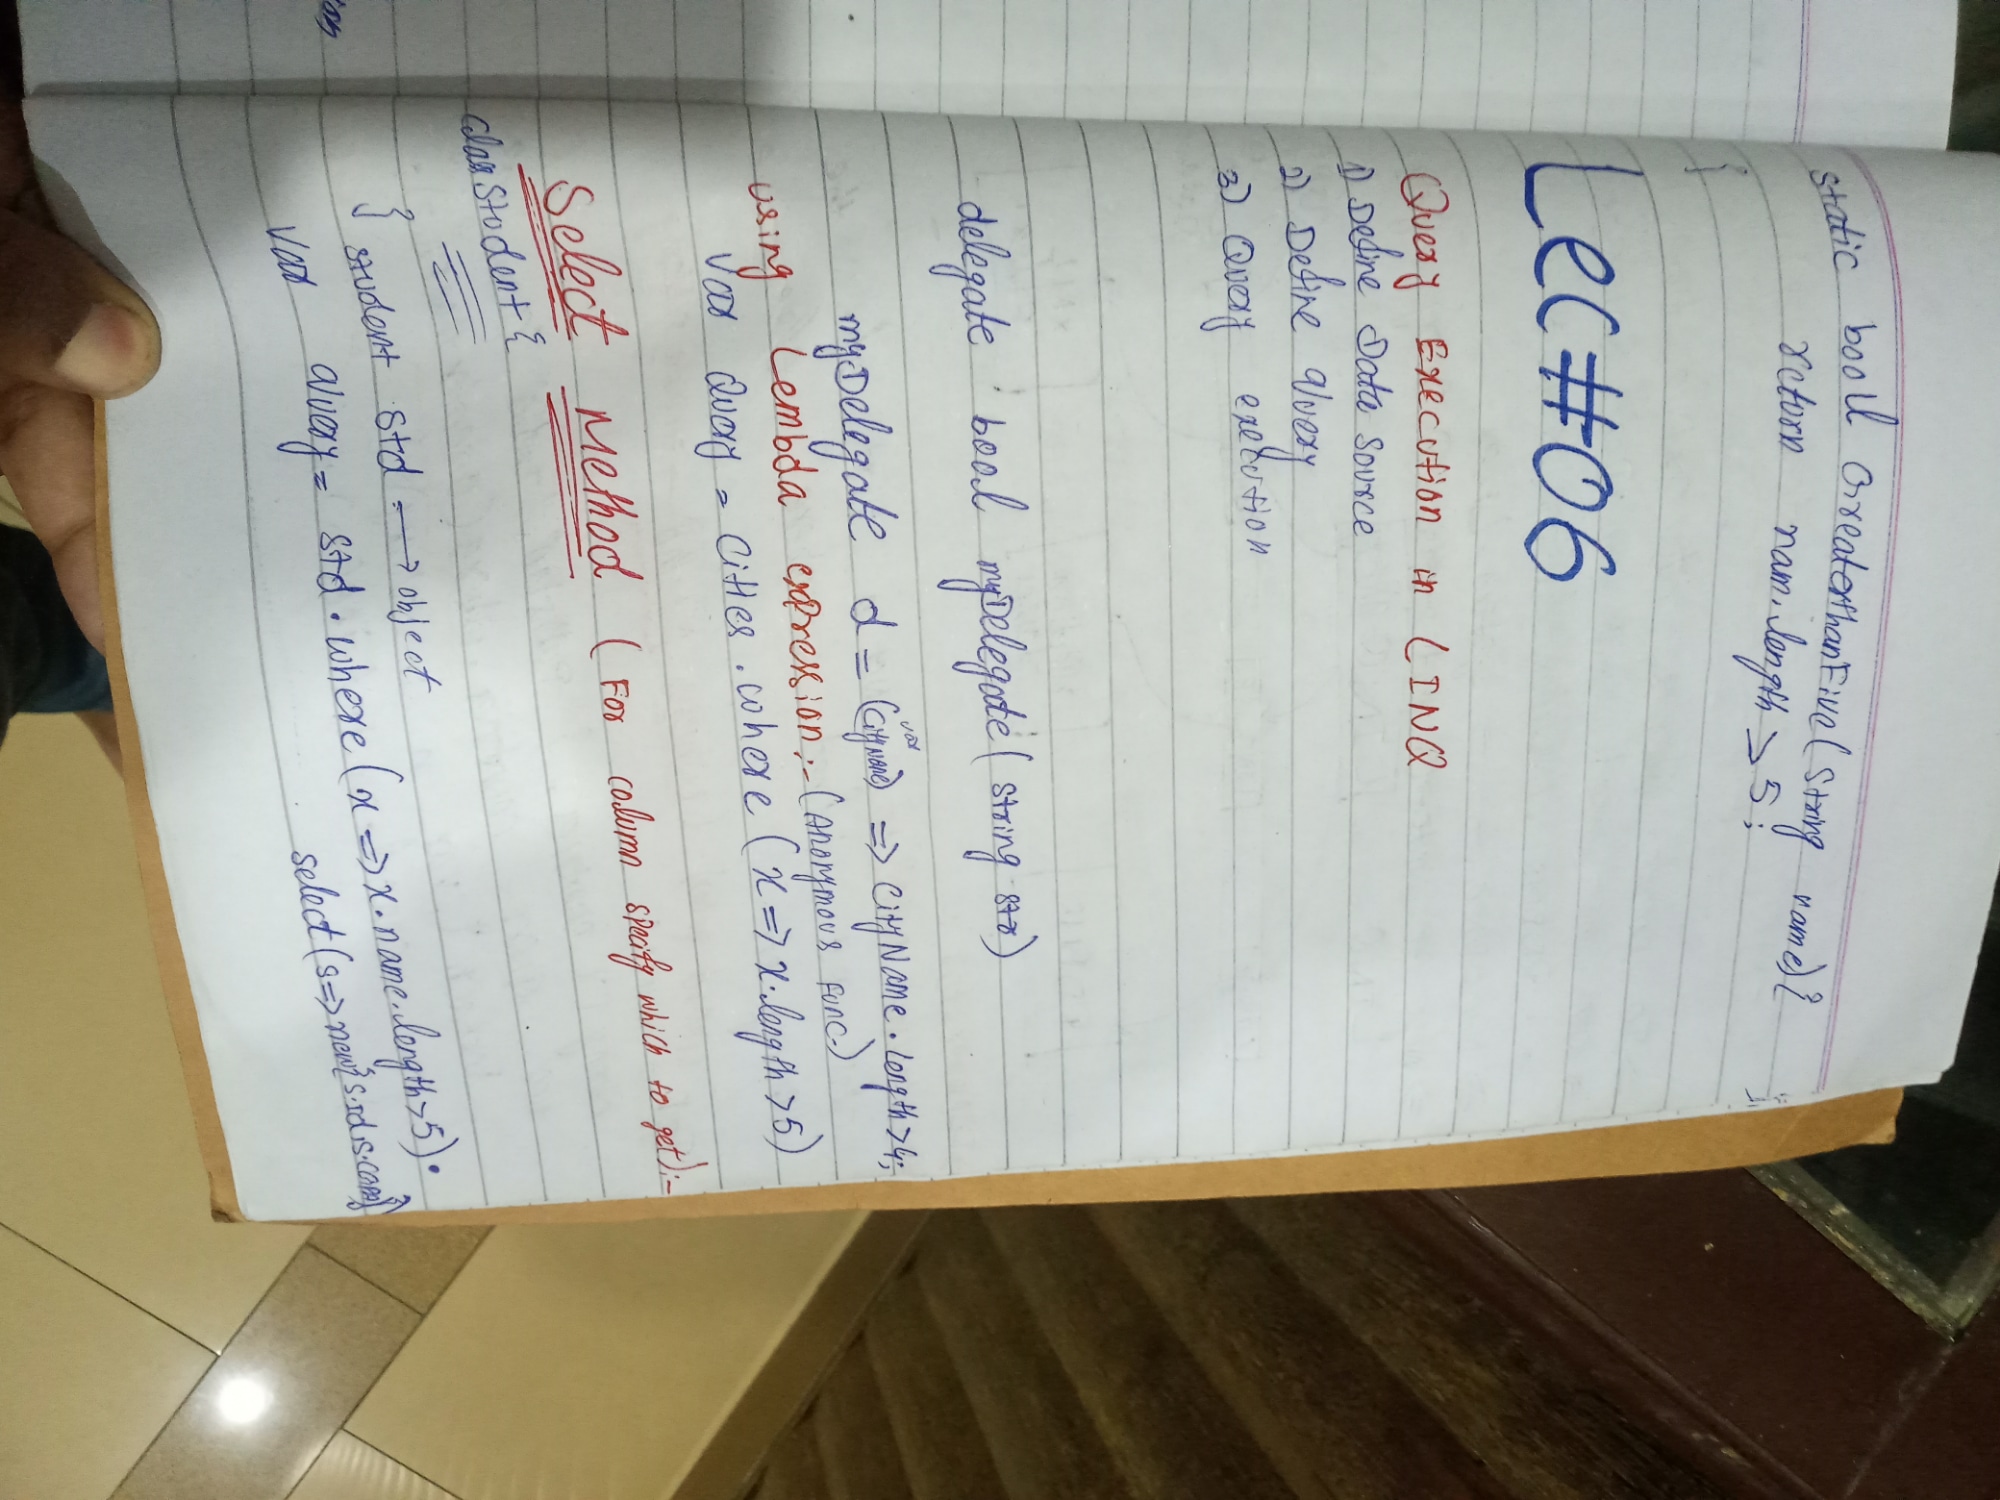 static bool GreaterthanFive(string name){
return nam.length > 5;
}
Lec#06
Query Execution in LINQ
1) Define Data source
2) Define query
3) Query execution
delegate bool myDelegate(string str)
var
myDelegate d = (CityName) => CityName.Length>4;
using Lembda expression:-(Anonymous Func.)
var Query = Cities.where(x=>x.length>5)
Select Method (For column specify which to get):-
class Student {
} student std → object
var query= std.where(x=>x.name.length>5).
select(s=>new{s.Id,s.CGPA})